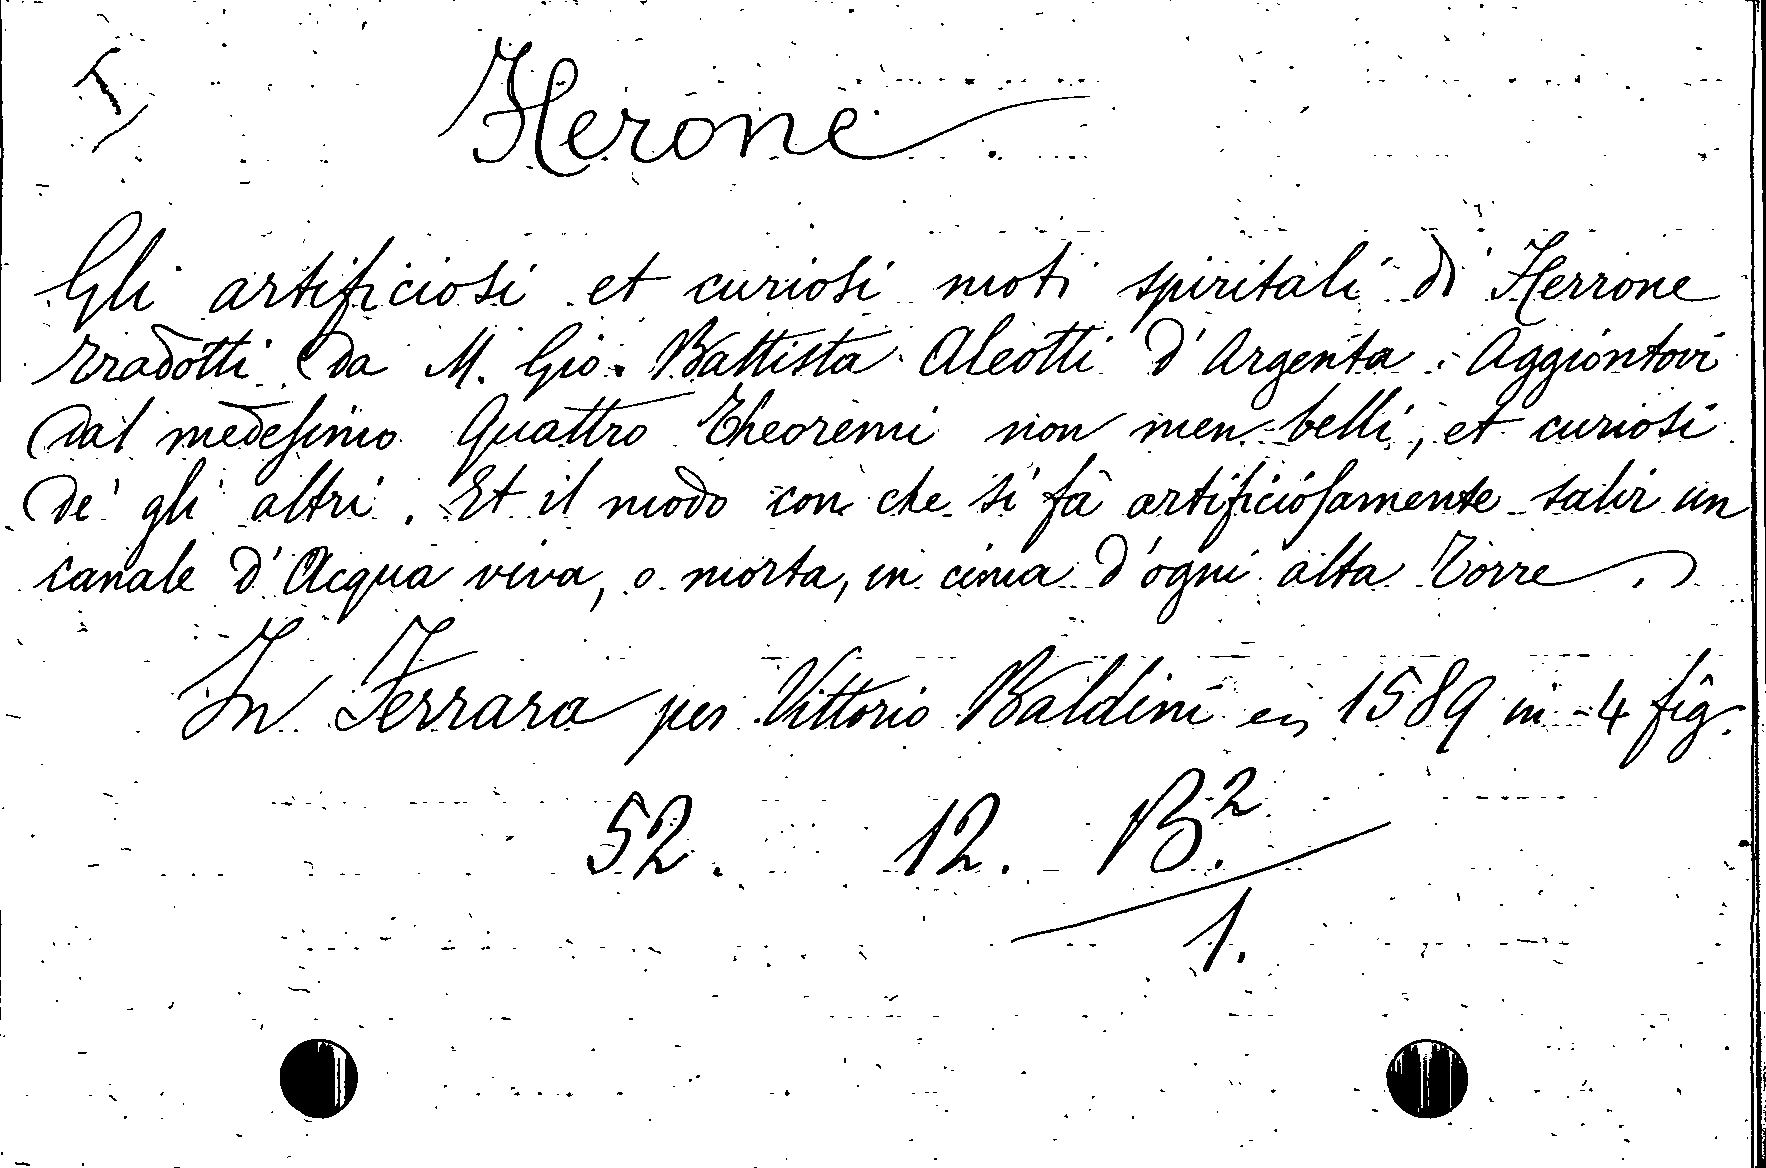 Herone.
Gli artificiosi et curiosi moti spiritali di Herrone
tradotti da M. Gio. Battista Aleotti d'Argenta. Aggiontovi
dal medesimo Quattro Theoremi non men belli, et curiosi
de' gli altri. Et il modo con che si fà artificiosamente salir un
canale d'Acqua viva, o morta, in cima d'ogni alta Torre.
In Ferrara per Vittorio Baldini en 1589 in-4 fig.
52. 12. B.2
1.